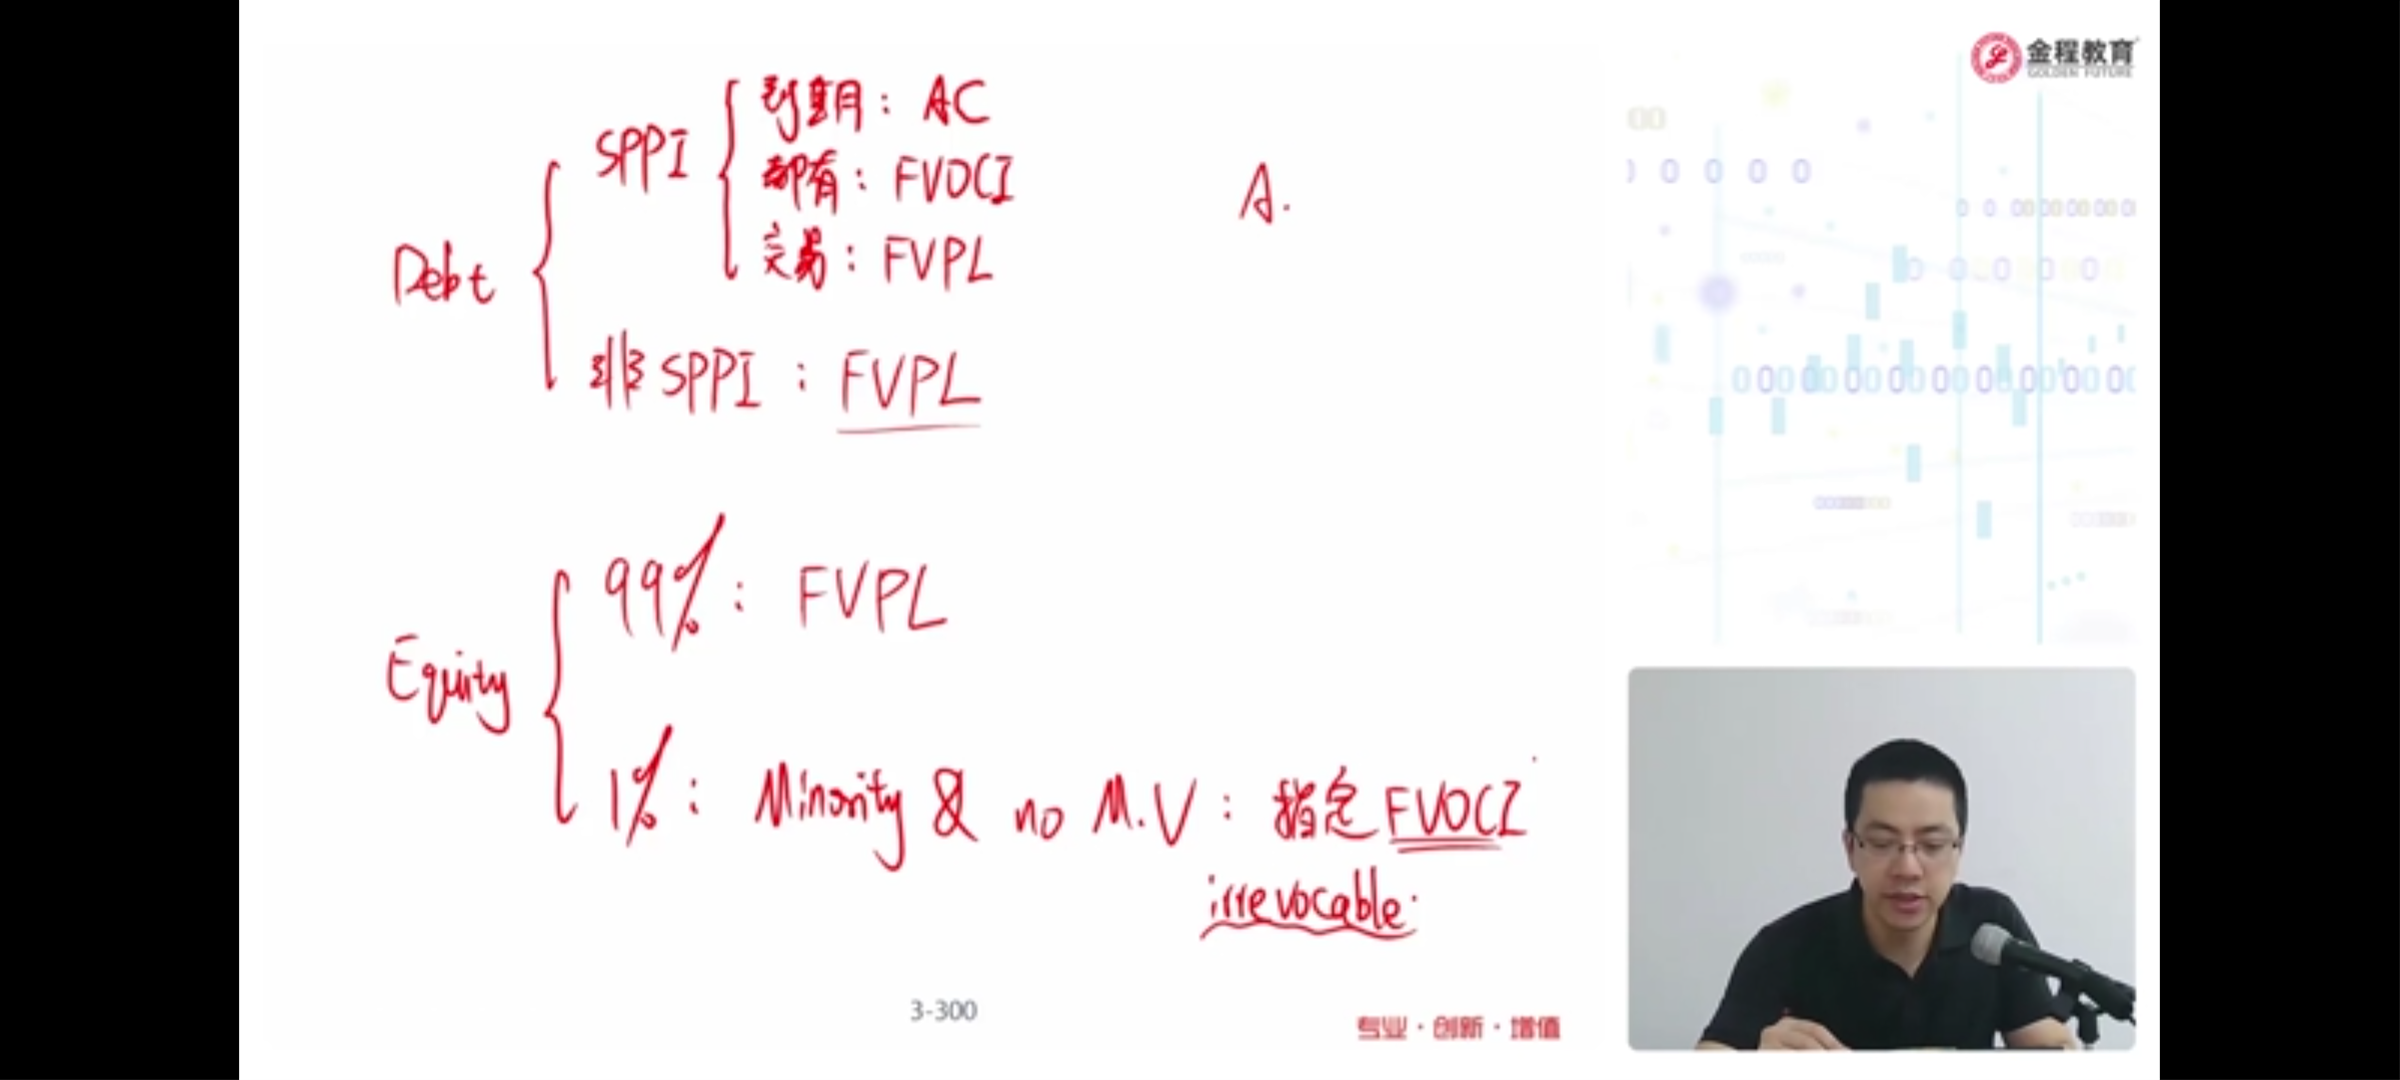 金程教育
GOLDEN FUTURE
Debt
SPPI
到期: AC
都有: FVOCI
交易: FVPL
非SPPI: FVPL
A.
Equity
99%: FVPL
1%: Minority & no M.V: 指定FVOCI
irrevocable.
3-300
专业·创新·增值